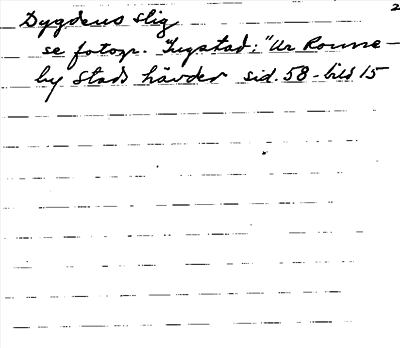 2
Dygdens stig
se fotogr. Tugstad: "Ur Ronne-
by Stads hävder sid. 58 - bild 15